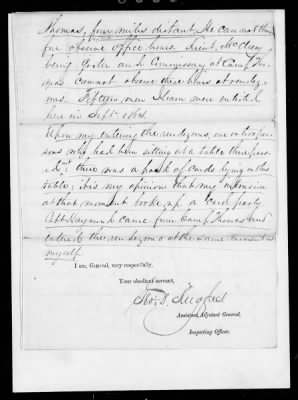 Thomas, four miles distant. He can not there
fore observe office hours. Lieut. McCleery
being Qr Mr and Commissary at Camp Tho
mas cannot observe these hours at rendez
vous. Fifteen men I learn were enlisted
here in Sept 1865.
Upon my entering the rendezvous, one or two per
sons who had been sitting at a table there, pass
ed out; there was a pack of cards lying on this
table; it is my opinion that my intrusion
at that moment broke up a card party.
Capt. Raymond came from Camp Thomas and
entered the rendezvous at the same moment as
myself.
I am, General, very respectfully,
Your obedient servant,
Hughes
Assistant Adjutant General,
Inspecting Officer.